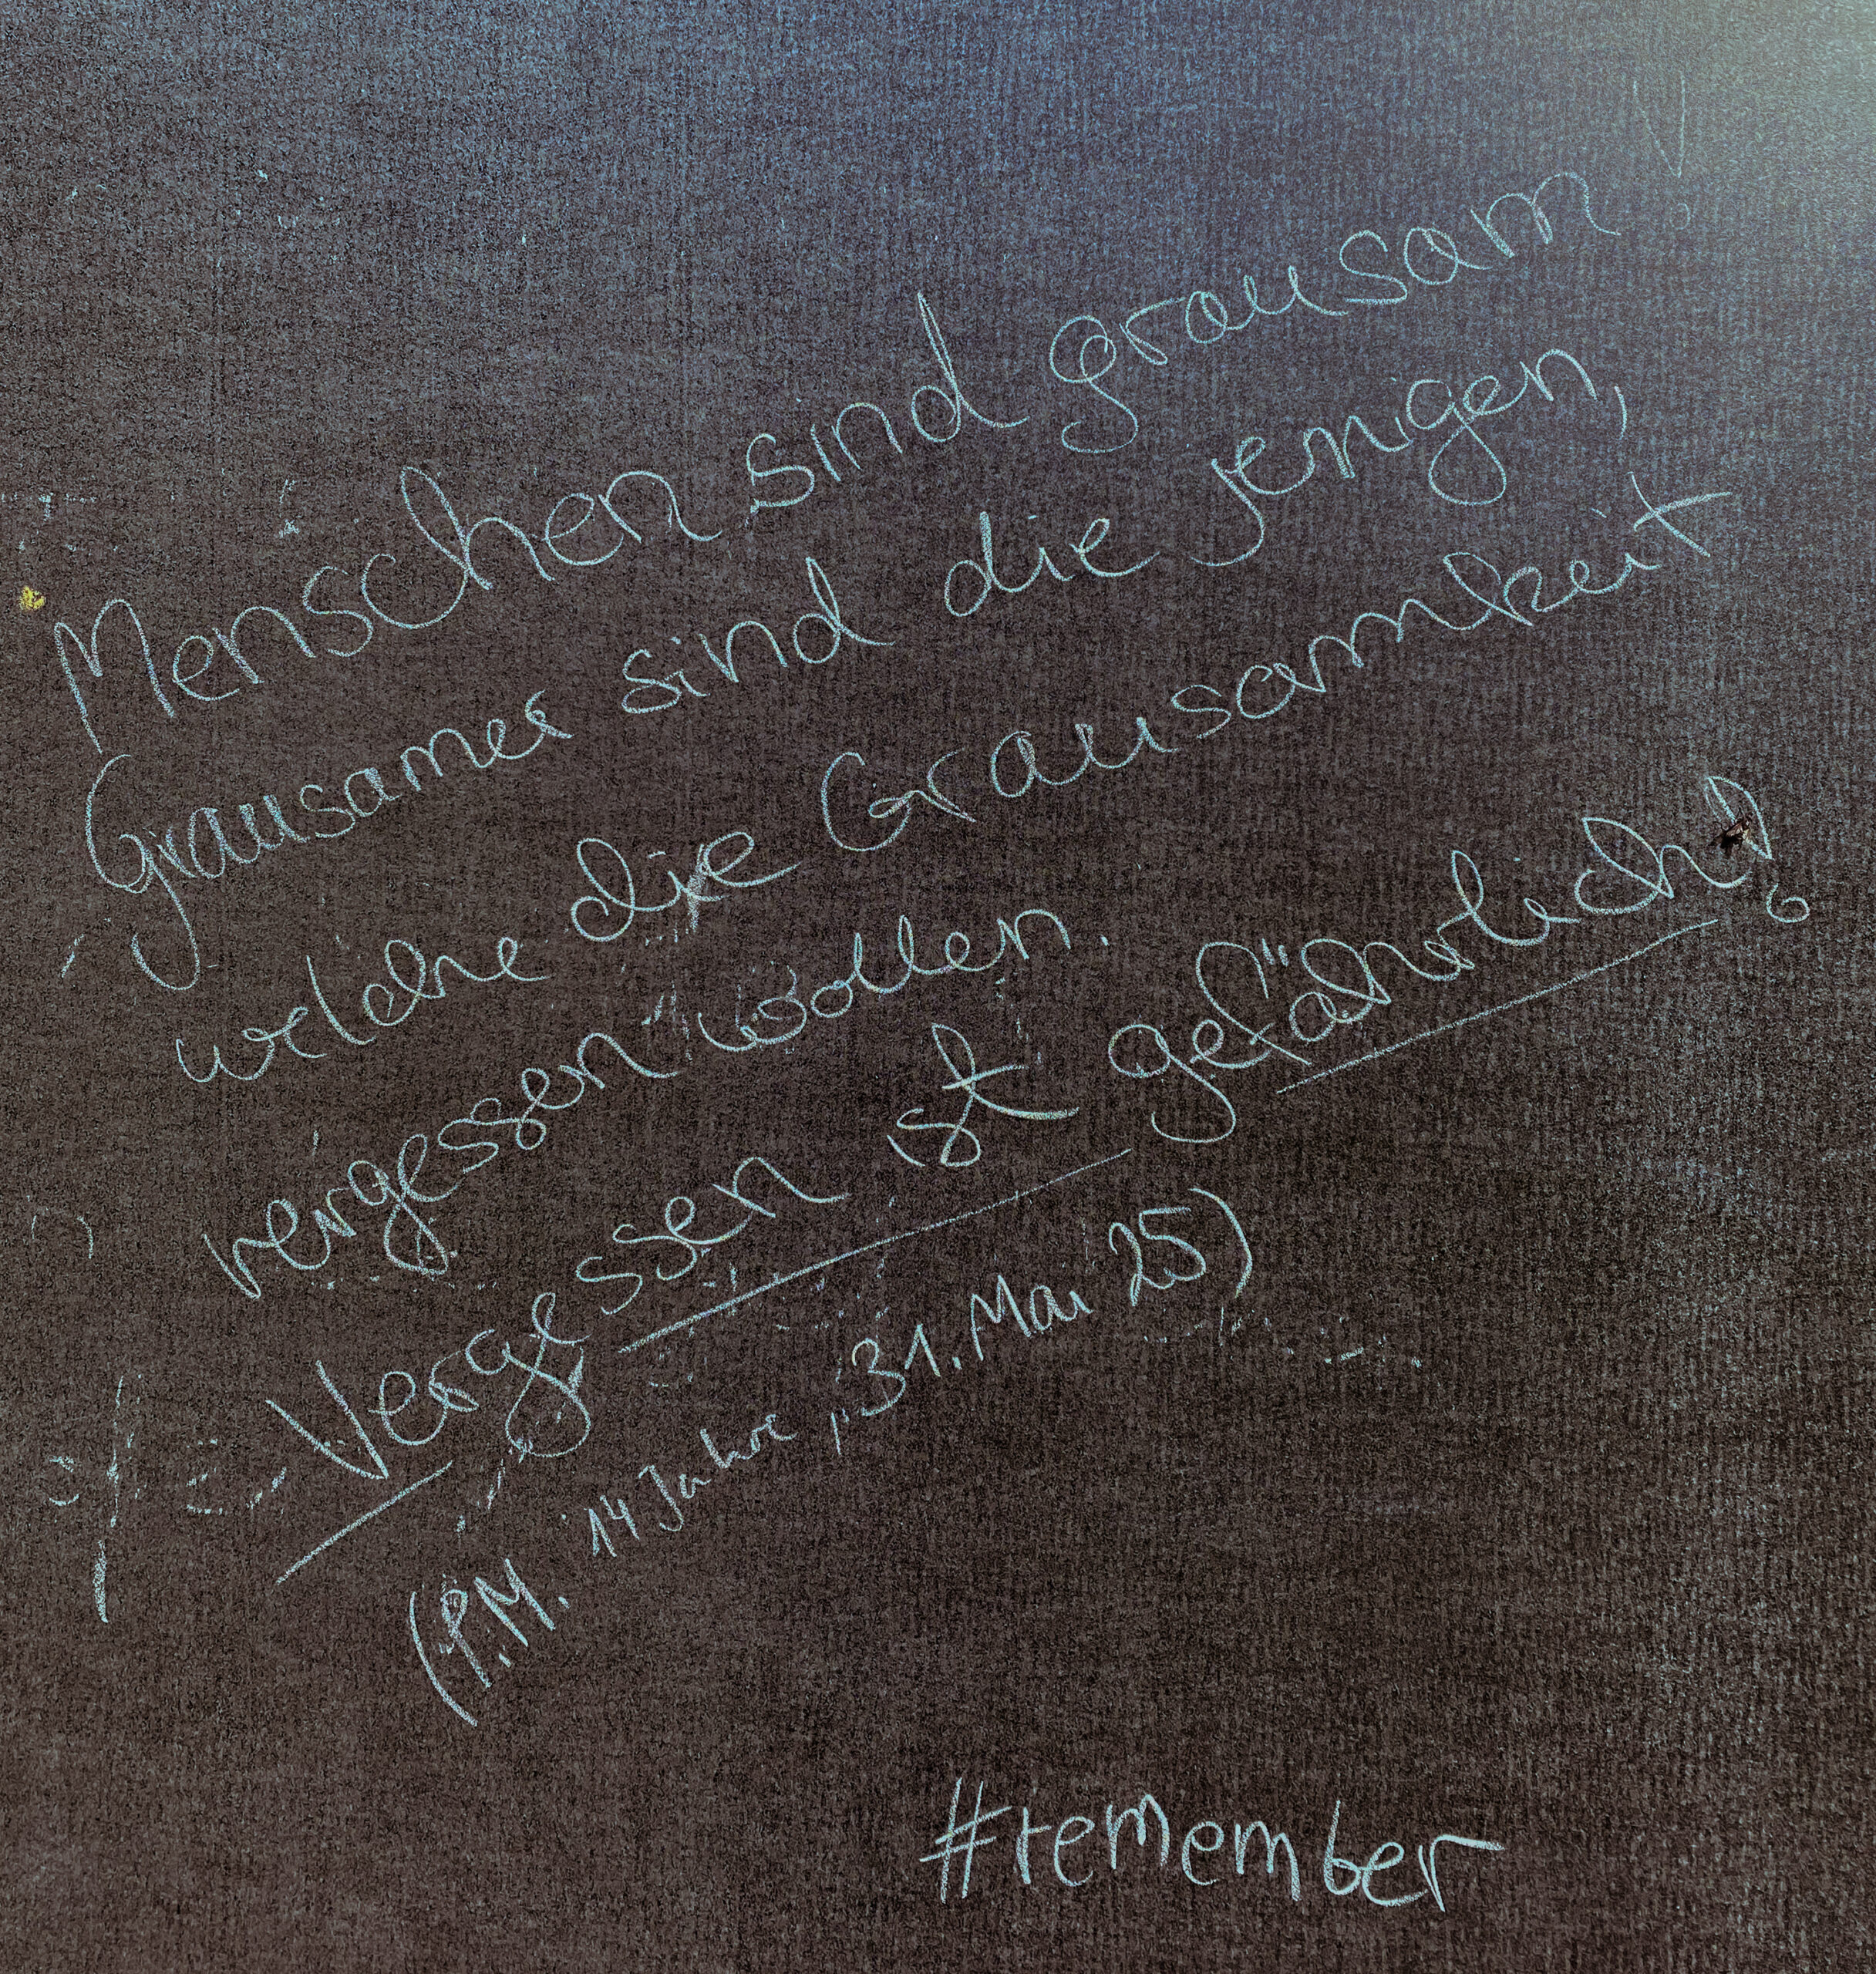 Menschen sind grausam!
Grausamer sind die jenigen,
welche die Grausamkeit
vergessen wollen.
Vergessen ist gefährlich!
(P.M. 14 Jahre, 31. Mai 25)
#remember